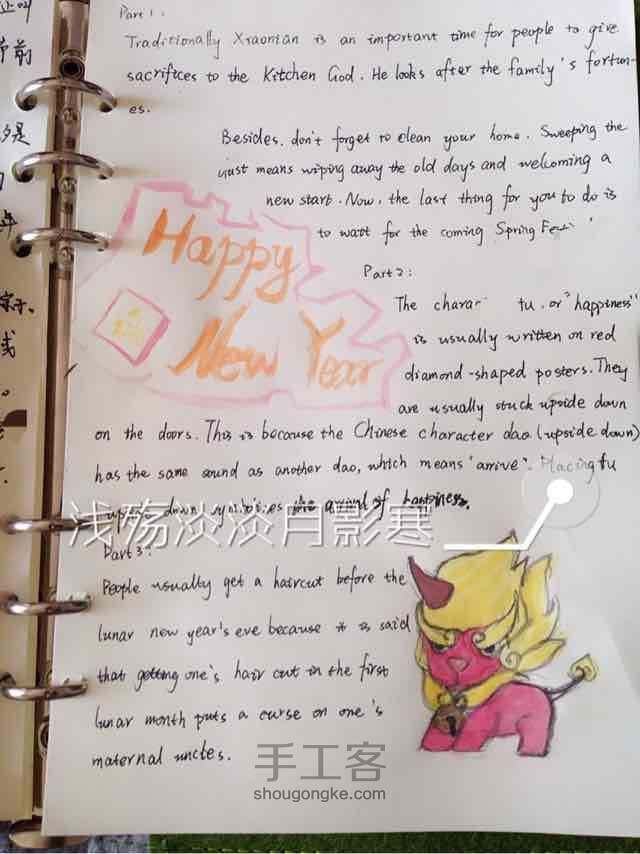 Part 1:
Traditionally Xiaonian is an important time for people to give
sacrifices to the Kitchen God. He looks after the family's fortun-
es.
Besides, don't forget to clean your home. Sweeping the
just means wiping away the old days and welcoming a
new start. Now, the last thing for you to do is
to wait for the coming Spring
Happy
New Year
Part 2:
The tu. or "happiness"
is usually written on red
diamond-shaped posters. They
are usually stuck upside down
on the doors. This is because the Chinese character dao (upside down)
has the same sound as another dao, which means "arrive". Placing fu
down the arrival of happiness.
浅殇淡淡月影寒
Part 3:
People usually get a haircut before the
lunar new year's eve because it is said
that getting one's hair cut in the first
lunar month puts a curse on one's
maternal uncles.
手工客
shougongke.com